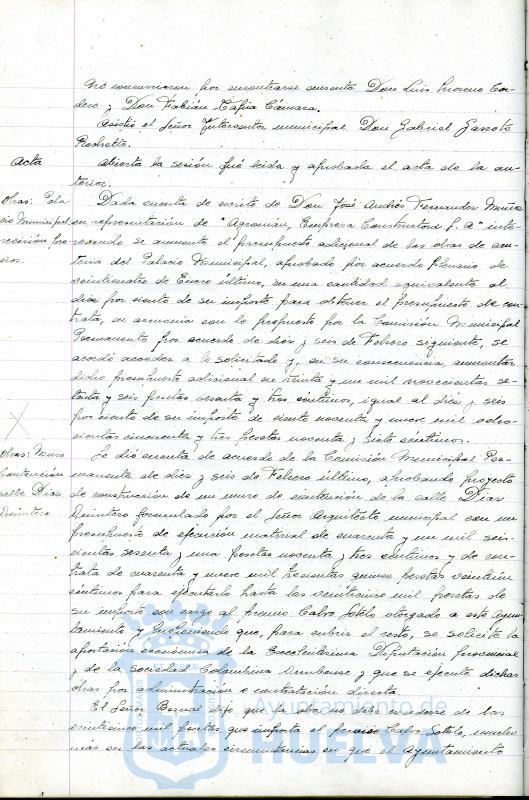 No concurrieron por encontrarse ausente Don Luis Moreno Cor-
dero y Don Fabián Tapia Cámara.
Asistió el Señor Interventor municipal Don Gabriel Garrote
Acta
Abierta la sesión fué leida y aprobada el acta de la an-
terior.
Obras: Pala-
cio Municipal
revisión pre-
cios.
Dada cuenta de escrito de Don José Andrés Fernandez
en representación de "Agroman, Empresa Constructora S. A" inte-
resando se aumente el presupuesto adicional de las obras de can-
teria del Palacio Municipal, aprobado por acuerdo plenario de
veinticuatro de Enero último, en una cantidad equivalente al
diez por ciento de su importe para obtener el presupuesto de con-
trata, en armonia con lo propuesto por la Comisión Municipal
Permanente por acuerdo de diez y seis de Febrero siguiente, se
acordó acceder a lo solicitado y, en su consecuencia, aumentar
dicho presupuesto adicional en treinta y un mil novecientas se-
tenta y seis pesetas sesenta y tres céntimos, igual al diez y seis
por ciento de su importe de ciento noventa y nueve mil ocho-
cientas cincuenta y tres pesetas noventa y siete céntimos.
Obras: Muro
Contención
calle Diaz
Quintero
Se dió cuenta de acuerdo de la Comisión Municipal Per-
manente de diez y seis de Febrero último, aprobando proyecto
de construcción de un muro de contención de la calle Diaz
Quintero formulado por el Señor Arquitecto municipal con un
presupuesto de ejecución material de cuarenta y un mil seis-
cientas sesenta y una pesetas noventa y tres céntimos y de con-
trata de cuarenta y nueve mil trescientas quince pesetas veintiún
céntimos para ejecutarlo hasta las veinticinco mil pesetas de
su importe con cargo al premio Calvo Sotelo otorgado a este Ayun-
tamiento y proponiendo que, para cubrir el resto, se solicite la
aportación económica de la Excelentisima Diputación provincial
y de la Sociedad Colombina Onubense y que se ejecute dichas
obras por administración o contratación directa.
El Señor Bernal dijo que la obra no debe excederse de las
veinticinco mil pesetas que importa el premio Calvo Sotelo, mucho
más en las actuales circunstancias en que el Ayuntamiento
Ayuntamiento de
HUELVA